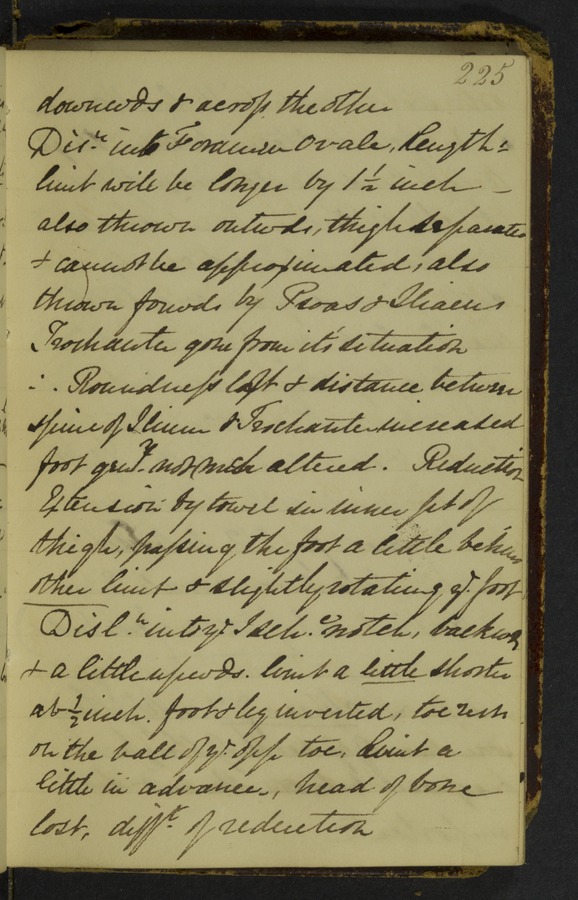 225
downwds & across the other
Disn into Foramen Ovale, Length:
limb will be longer by 1½ inch –
also thrown outwds, thigh separates
& cannot be approximated, also
thrown forwds by Psoas & Iliacus
Trochanter gone from its situation
∴ Roundness lost & distance between
spine of Ilium & Trochanter increased
foot genly not much altered. Reduction
Extension by towel in inner pt of
thigh, passing the foot a little behind
other limb & slightly rotating ye foot
Disln into ye Isch.c notch, backwd
& a little upwds. limb a little shorter
abt ½ inch. foot & leg inverted, toe rests
on the ball of ye opp toe, limb a
little in advance, head of bone
lost, difft of reduction